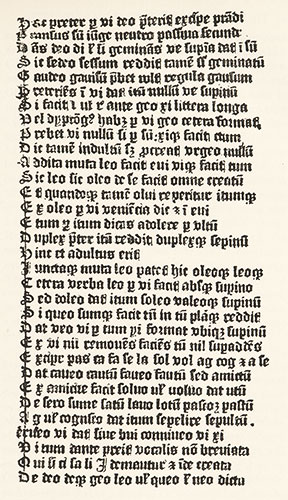 Hac preter ꝑ vi deo p̄teris excipe prādi
Pransus sū iūge neutro passiua secunde
Dās deo di ł si geminās ve supīa dat i sū
Sic sedeo sessum reddit tamē geminatū
Gaudeo gauisū vult regula gausum
ī vi dat itū nullū ve supinū
Si facit ante geo xi littera longa
Vel habꝫ ꝑ vi geo cetera format
Prebet vi nullū si ꝑ sū: xiqꝫ facit ctum
Dic tamē indultū sꝫ vrgeo nullū
Addita muta leo facit eui viqꝫ facit tum
Sic leo sic oleo de se facit omne creatū
Et quandoqꝫ tamē olui reperitur itumqꝫ
Ex oleo ꝑ vi ⁊ ī eui
Etum ꝑ itum dicas adolere ꝑ vltū
Duplex p̄ter itū reddit duplexqꝫ supinū
Hinc et adultus erit
Iunctaqꝫ muta leo patet hic oleoqꝫ leoqꝫ
Cetera verba leo ꝑ vi facit absqꝫ supino
Sed doleo dat itum soleo valeoqꝫ supinū
Si queo sumqꝫ facit tū in tū reddit
Dat veo vi ꝑ tum format vbiqꝫ supinū
Ex vi nil remouēs faciēs tū nil supaddes
Excipe pas ca fa se la sol vol ag cog ⁊ a se
Dat caueo cautū faueo fautū sed amictū
Ex amicire facit soluo ul' voluo dat utū
De sero sume satū lauo lotū pascoꝫ pastū
Ag ul' cognosco dat itum sepelire sepultū.
Ferueo vi dat siue bui conniueo vi xi
Di tum dante preit vocalis nō breuiata
Qui si ci sa li I demantur ⁊ īde creata
De deo deqꝫ geo leo ul' queo ł neo dictu